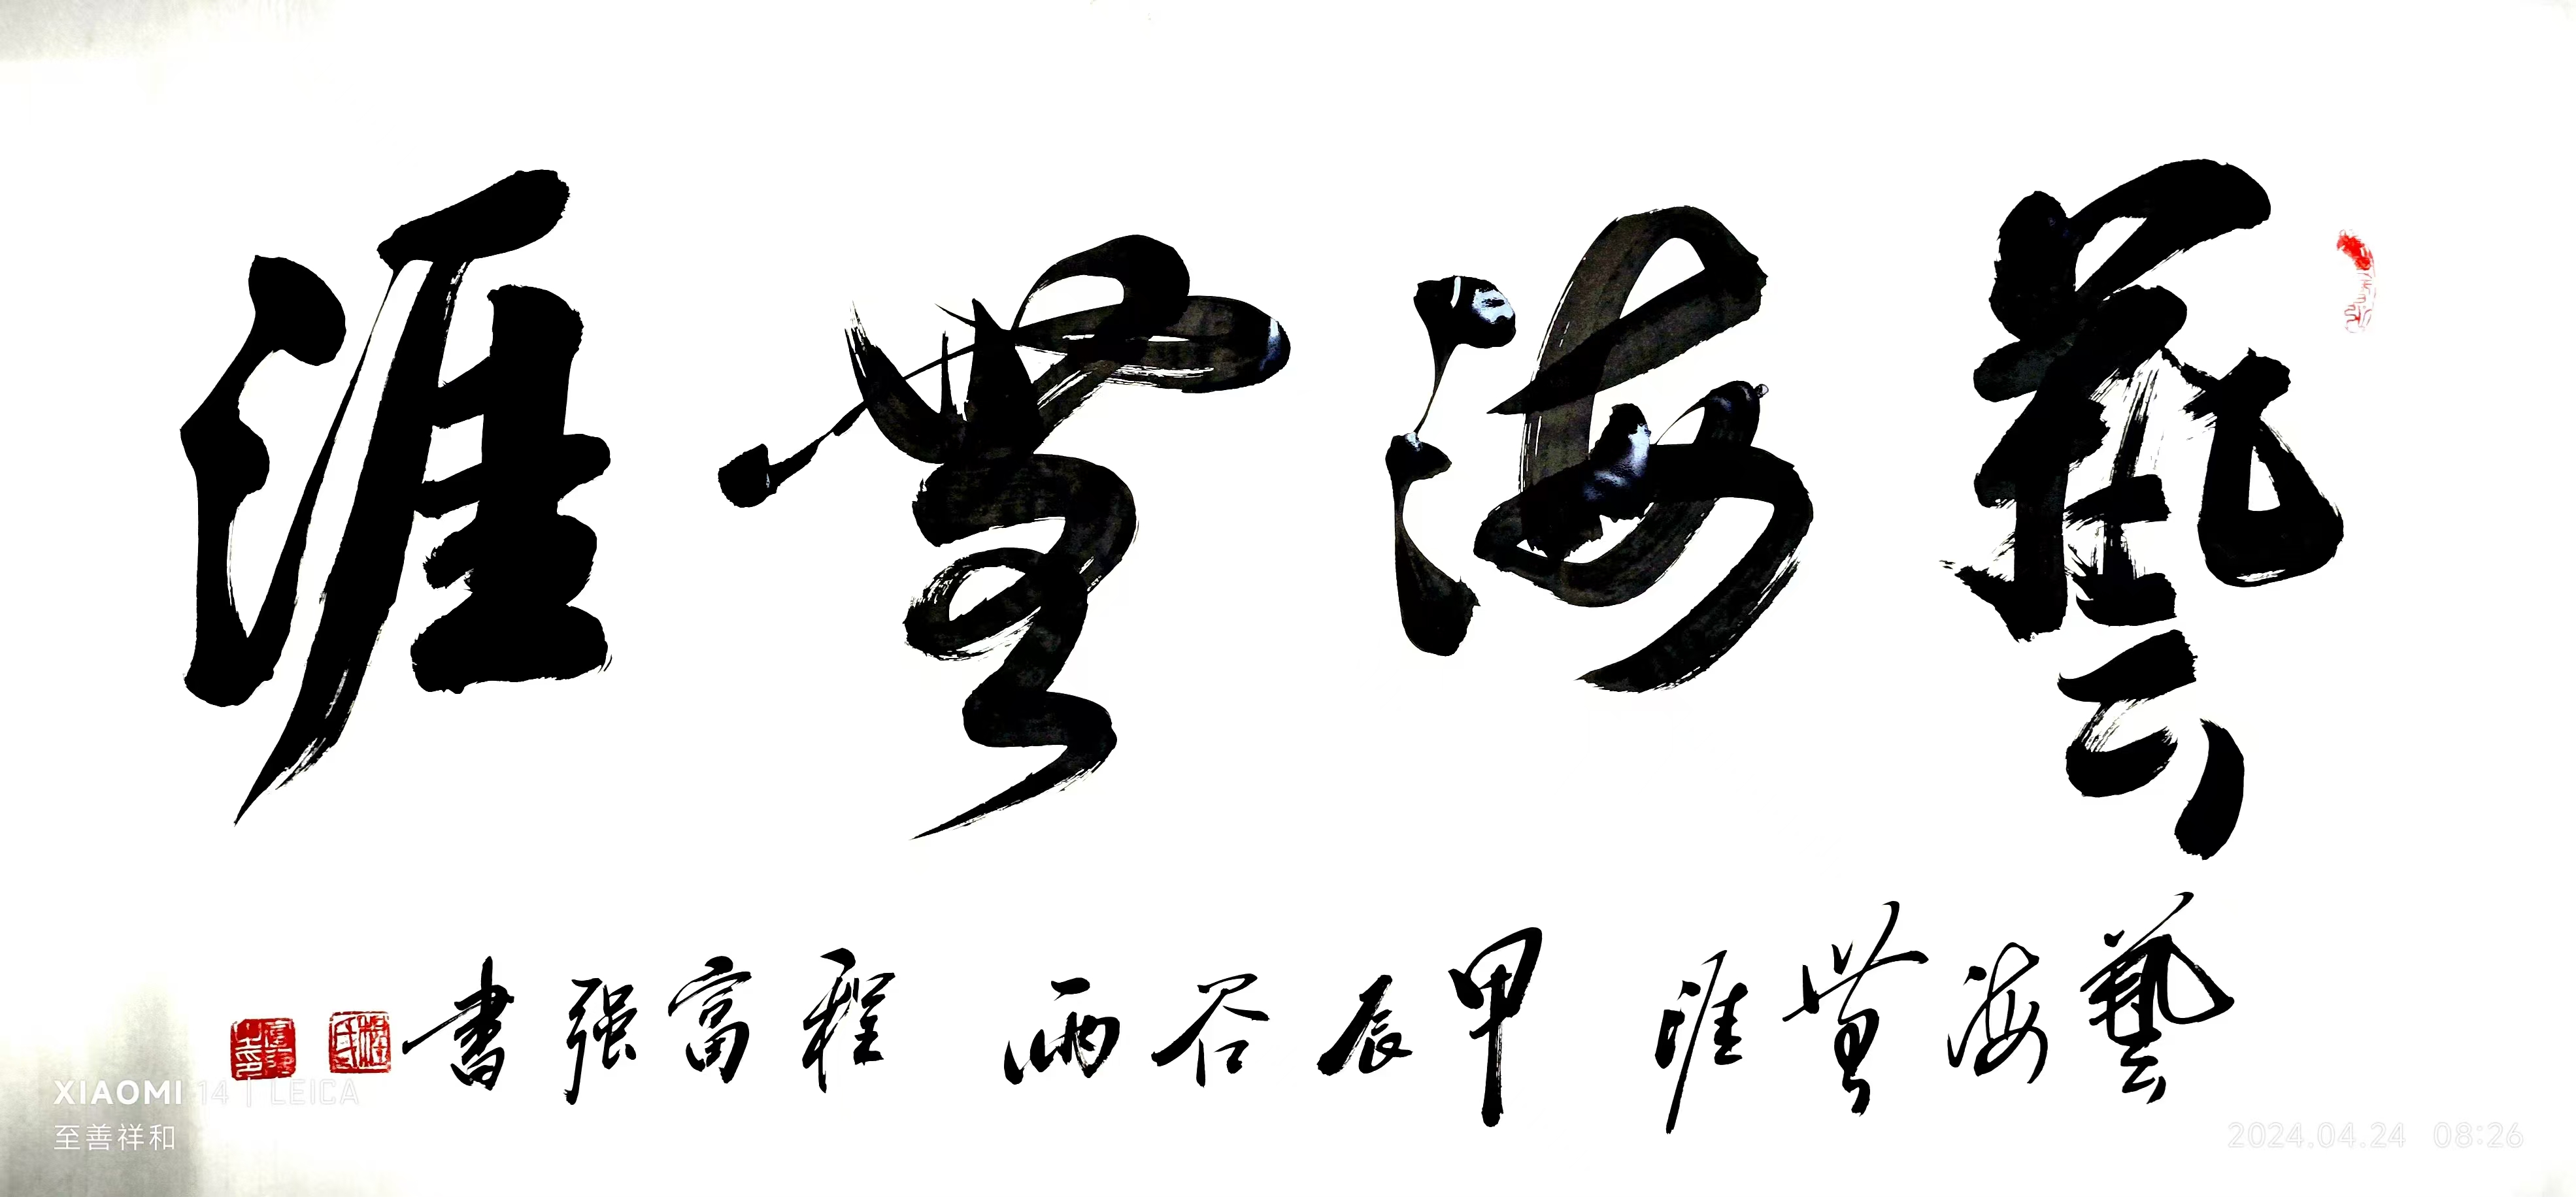 藝海無涯
藝海無涯 甲辰谷雨 程富强書
程氏
XIAOMI 14 | LEICA
至善祥和
2024.04.24 08:26